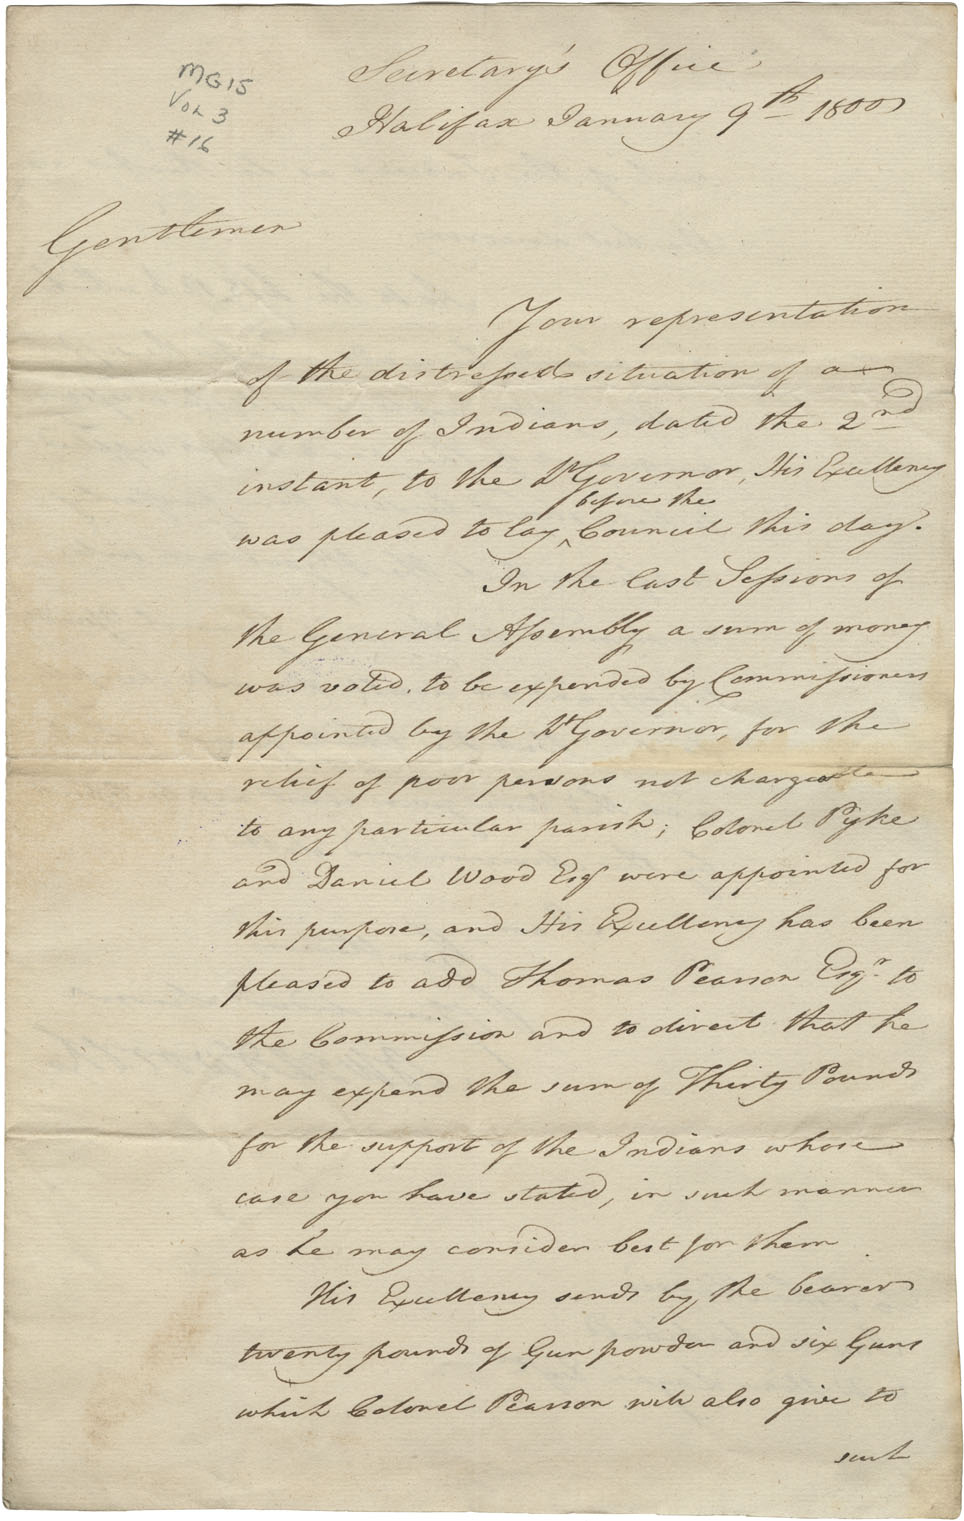 MG15
Vol 3
#16
Secretary's Office
Halifax January 9th 1800
Gentlemen
Your representation
of the distressed situation of a
number of Indians, dated the 2nd
instant, to the Lt Governor, His Excellency
before the
was pleased to lay ^ Council this day.
In the last Sessions of
the General Assembly a sum of money
was voted, to be expended by Commissioners
appointed by the Lt Governor, for the
relief of poor persons not chargeable
to any particular parish; Colonel Pyke
and Daniel Wood Esqr were appointed for
this purpose, and His Excellency has been
pleased to add Thomas Pearson Esqr. to
the Commission and to direct that he
may expend the sum of Thirty Pounds
for the support of the Indians whose
case you have stated, in such manner
as he may consider best for them
His Excellency sends by the bearer
twenty pounds of Gun powder and six Guns
which Colonel Pearson will also give to
such